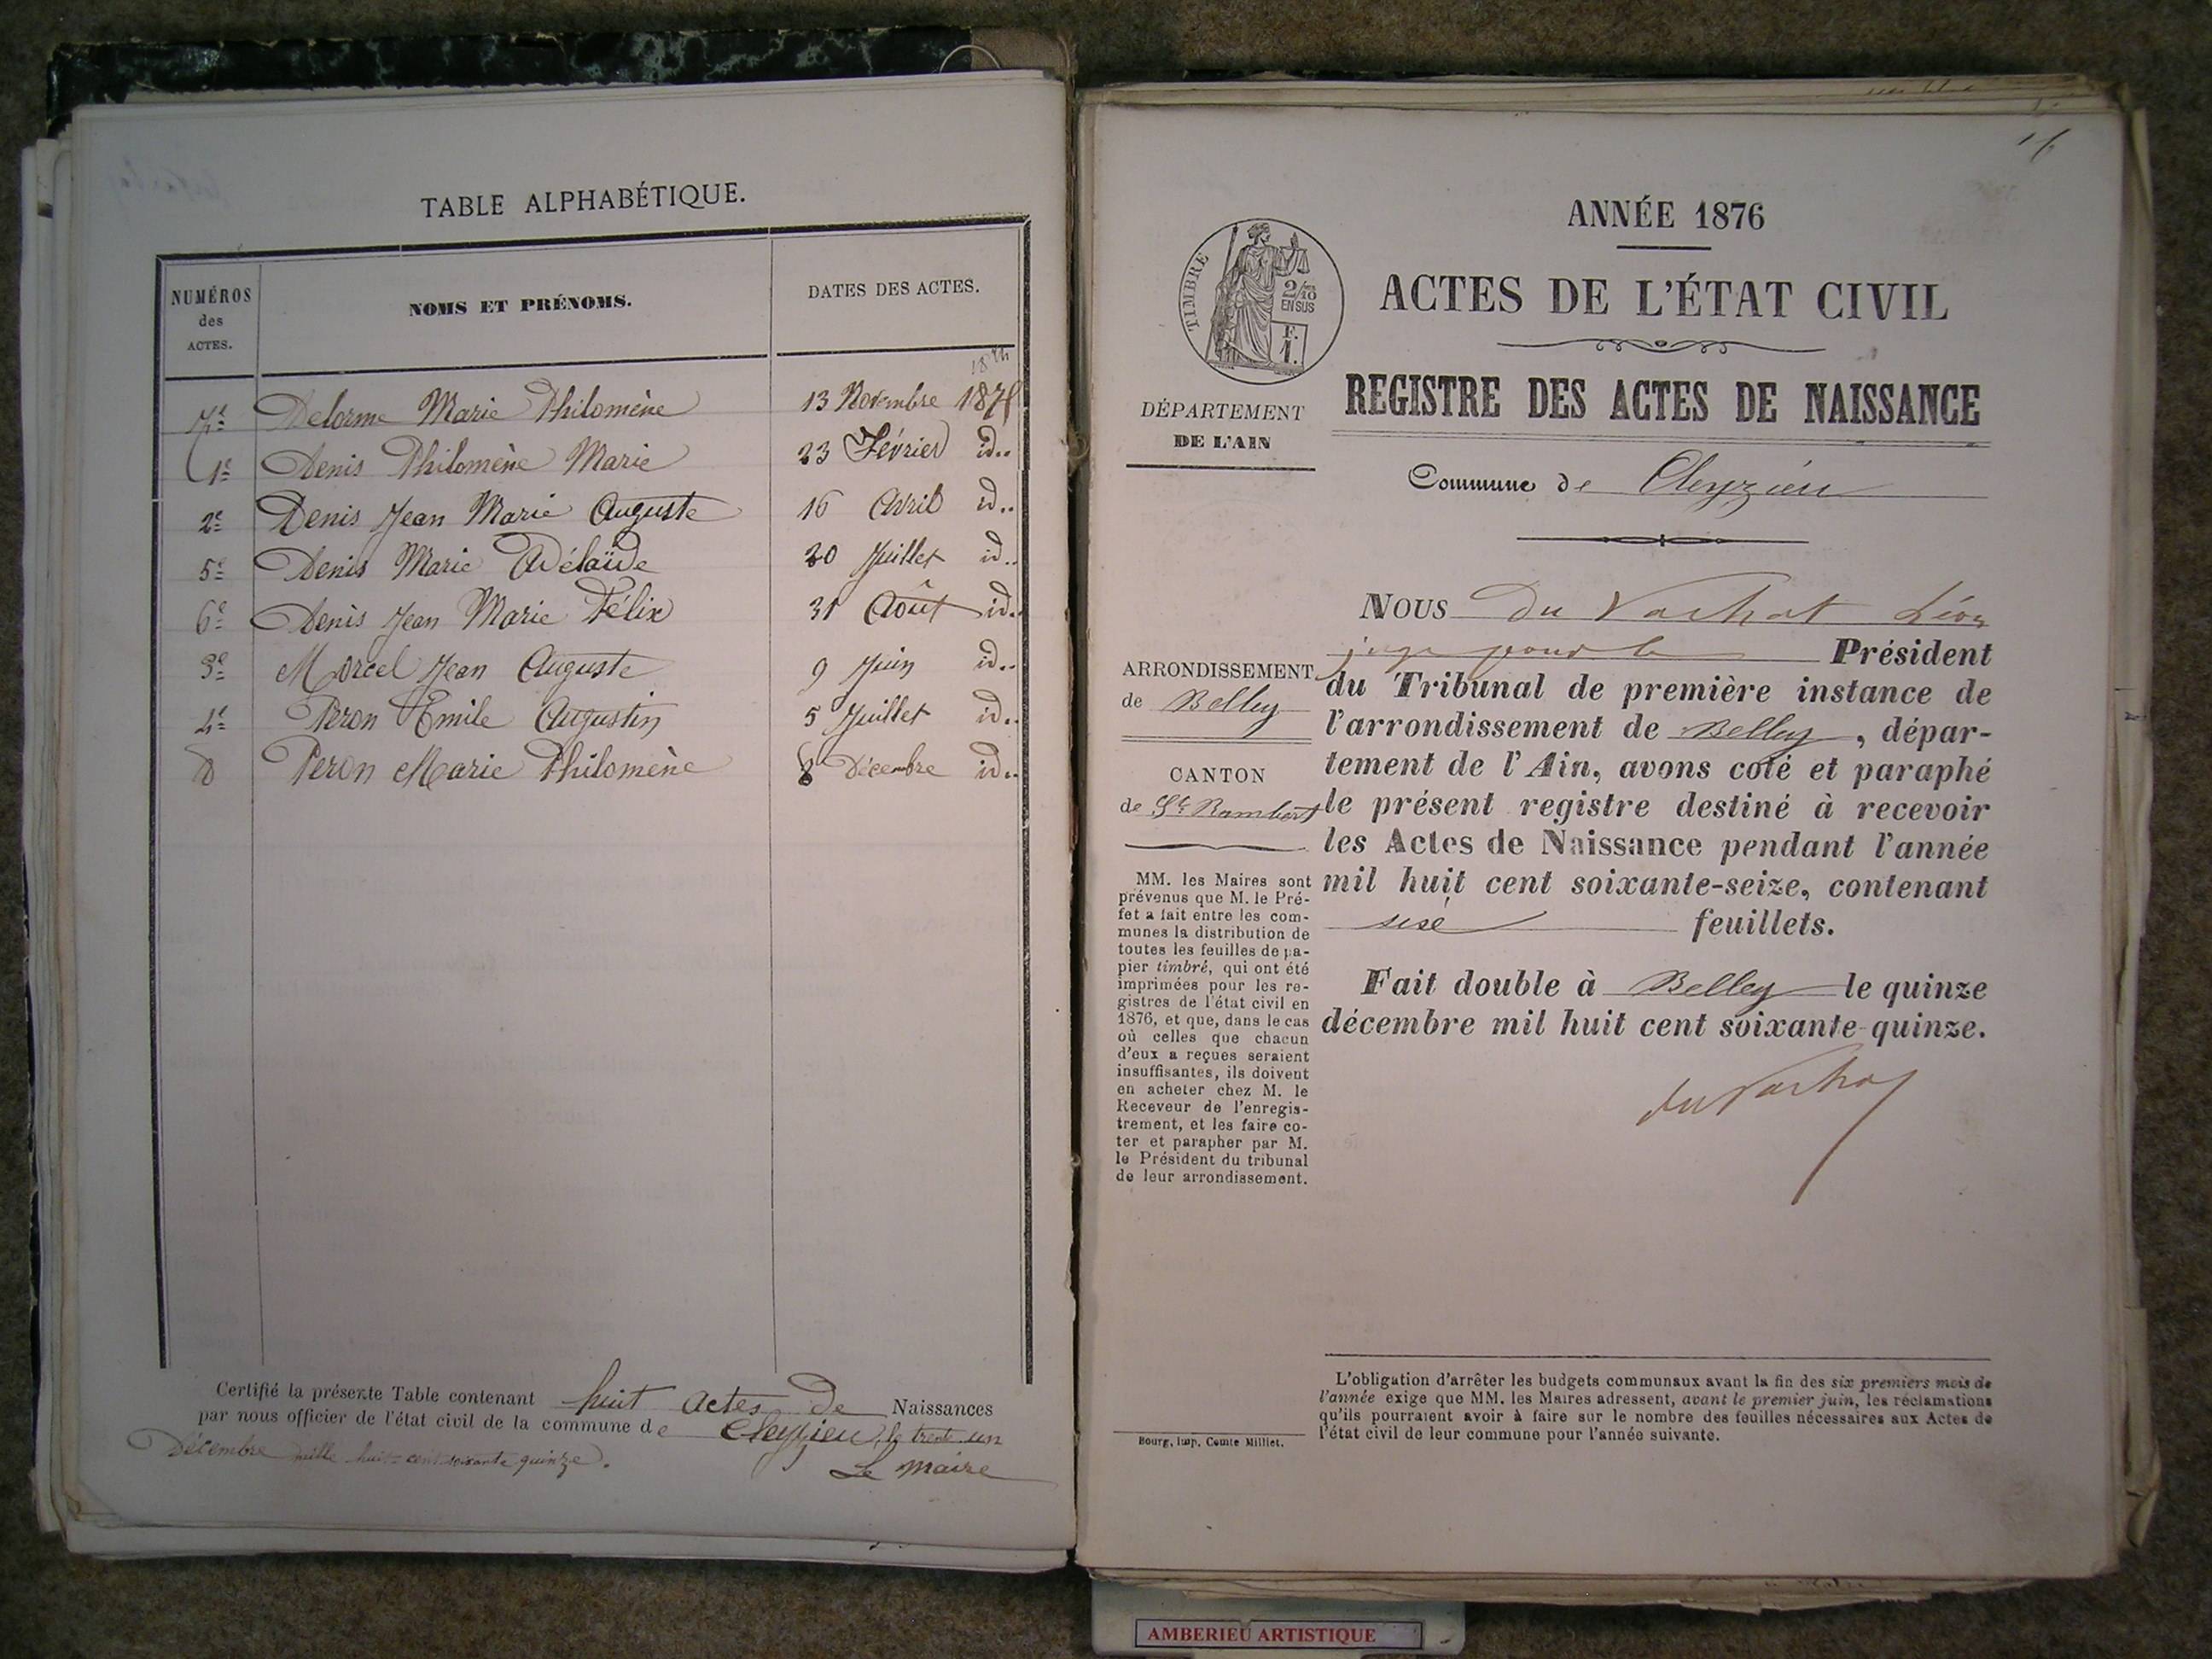 TABLE ALPHABÉTIQUE.
NUMÉROS
des
ACTES.
NOMS ET PRÉNOMS.
DATES DES ACTES.
7e Delorme Marie Philomène 13 Novembre
1e Denis Philomène Marie 23 Février id..
2e Denis Jean Marie Auguste 16 Avril id..
5e Denis Marie Adélaïde 20 Juillet id..
6e Denis Jean Marie Félix 31 Août id..
3e Morcel Jean Auguste 9 Juin id..
4e Peron Emile Augustin 5 Juillet id..
8 Peron Marie Philomène 8 Décembre id..
Certifié la présente Table contenant huit actes de Naissances
par nous officier de l'état civil de la commune de Cleyzieu, le trente un
Décembre mille huit cent soixante quinze.
Le Maire
16
ANNÉE 1876
TIMBRE
2/10
EN SUS
F.
1.
ACTES DE L'ÉTAT CIVIL
REGISTRE DES ACTES DE NAISSANCE
DÉPARTEMENT
DE L'AIN
Commune de Cleyzieu
ARRONDISSEMENT
de Belley
CANTON
de St Rambert
MM. les Maires sont
prévenus que M. le Pré-
fet a fait entre les com-
munes la distribution de
toutes les feuilles de pa-
pier timbré, qui ont été
imprimées pour les re-
gistres de l'état civil en
1876, et que, dans le cas
où celles que chacun
d'eux a reçues seraient
insuffisantes, ils doivent
en acheter chez M. le
Receveur de l'enregis-
trement, et les faire co-
ter et parapher par M.
le Président du tribunal
de leur arrondissement.
Bourg, imp. Comte Milliet.
NOUS Du Vachat Léon
juge pour le Président
du Tribunal de première instance de
l'arrondissement de Belley, dépar-
tement de l'Ain, avons coté et paraphé
le présent registre destiné à recevoir
les Actes de Naissance pendant l'année
mil huit cent soixante-seize, contenant
feuillets.
Fait double à Belley le quinze
décembre mil huit cent soixante-quinze.
du Vachat
L'obligation d'arrêter les budgets communaux avant la fin des six premiers mois de
l'année exige que MM. les Maires adressent, avant le premier juin, les réclamations
qu'ils pourraient avoir à faire sur le nombre des feuilles nécessaires aux Actes de
l'état civil de leur commune pour l'année suivante.
AMBERIEU ARTISTIQUE